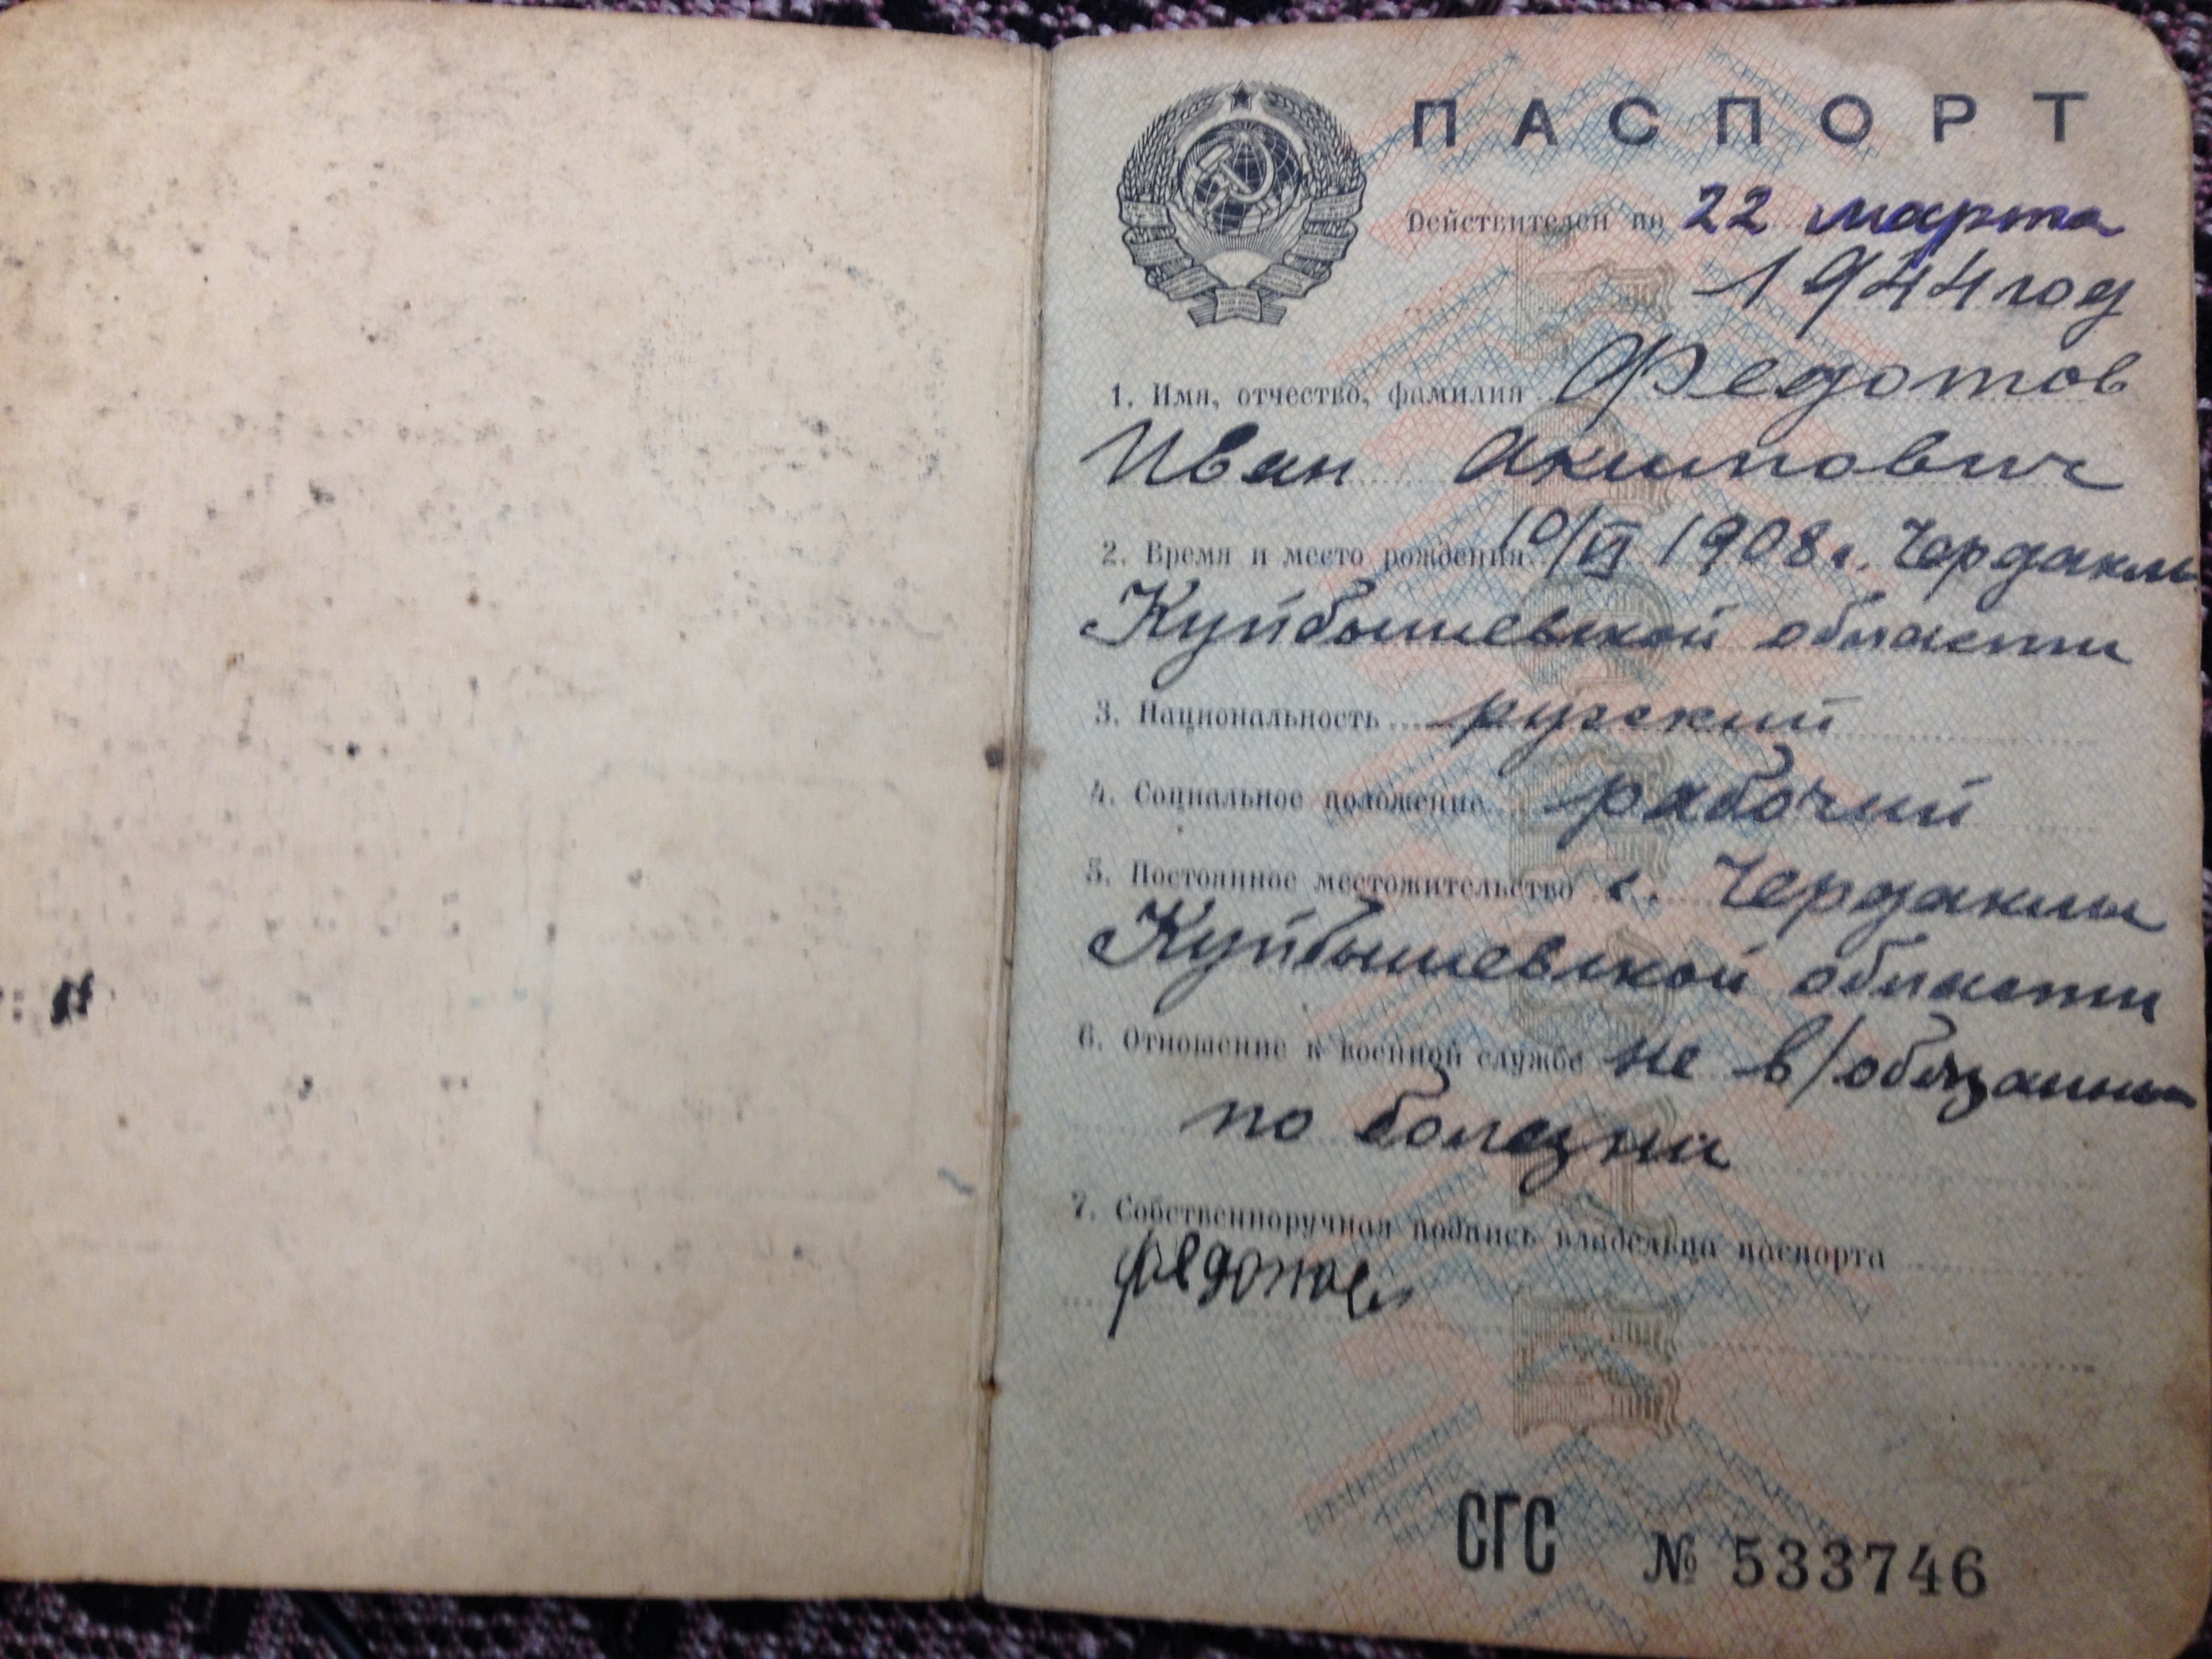 ПАСПОРТ
Действителен по 22 марта
1944 год
1. Имя, отчество, фамилия Федотов
Иван Акипович
2. Время и место рождения 10/VI 1908 г. Чердаклы
Куйбышевской области
3. Национальность русский
4. Социальное положение рабочий
5. Постоянное местожительство с. Чердаклы
Куйбышевской области
6. Отношение к военной службе не в/обязанный
по болезни
7. Собственноручная подпись владельца паспорта
Федотов
СГС № 533746